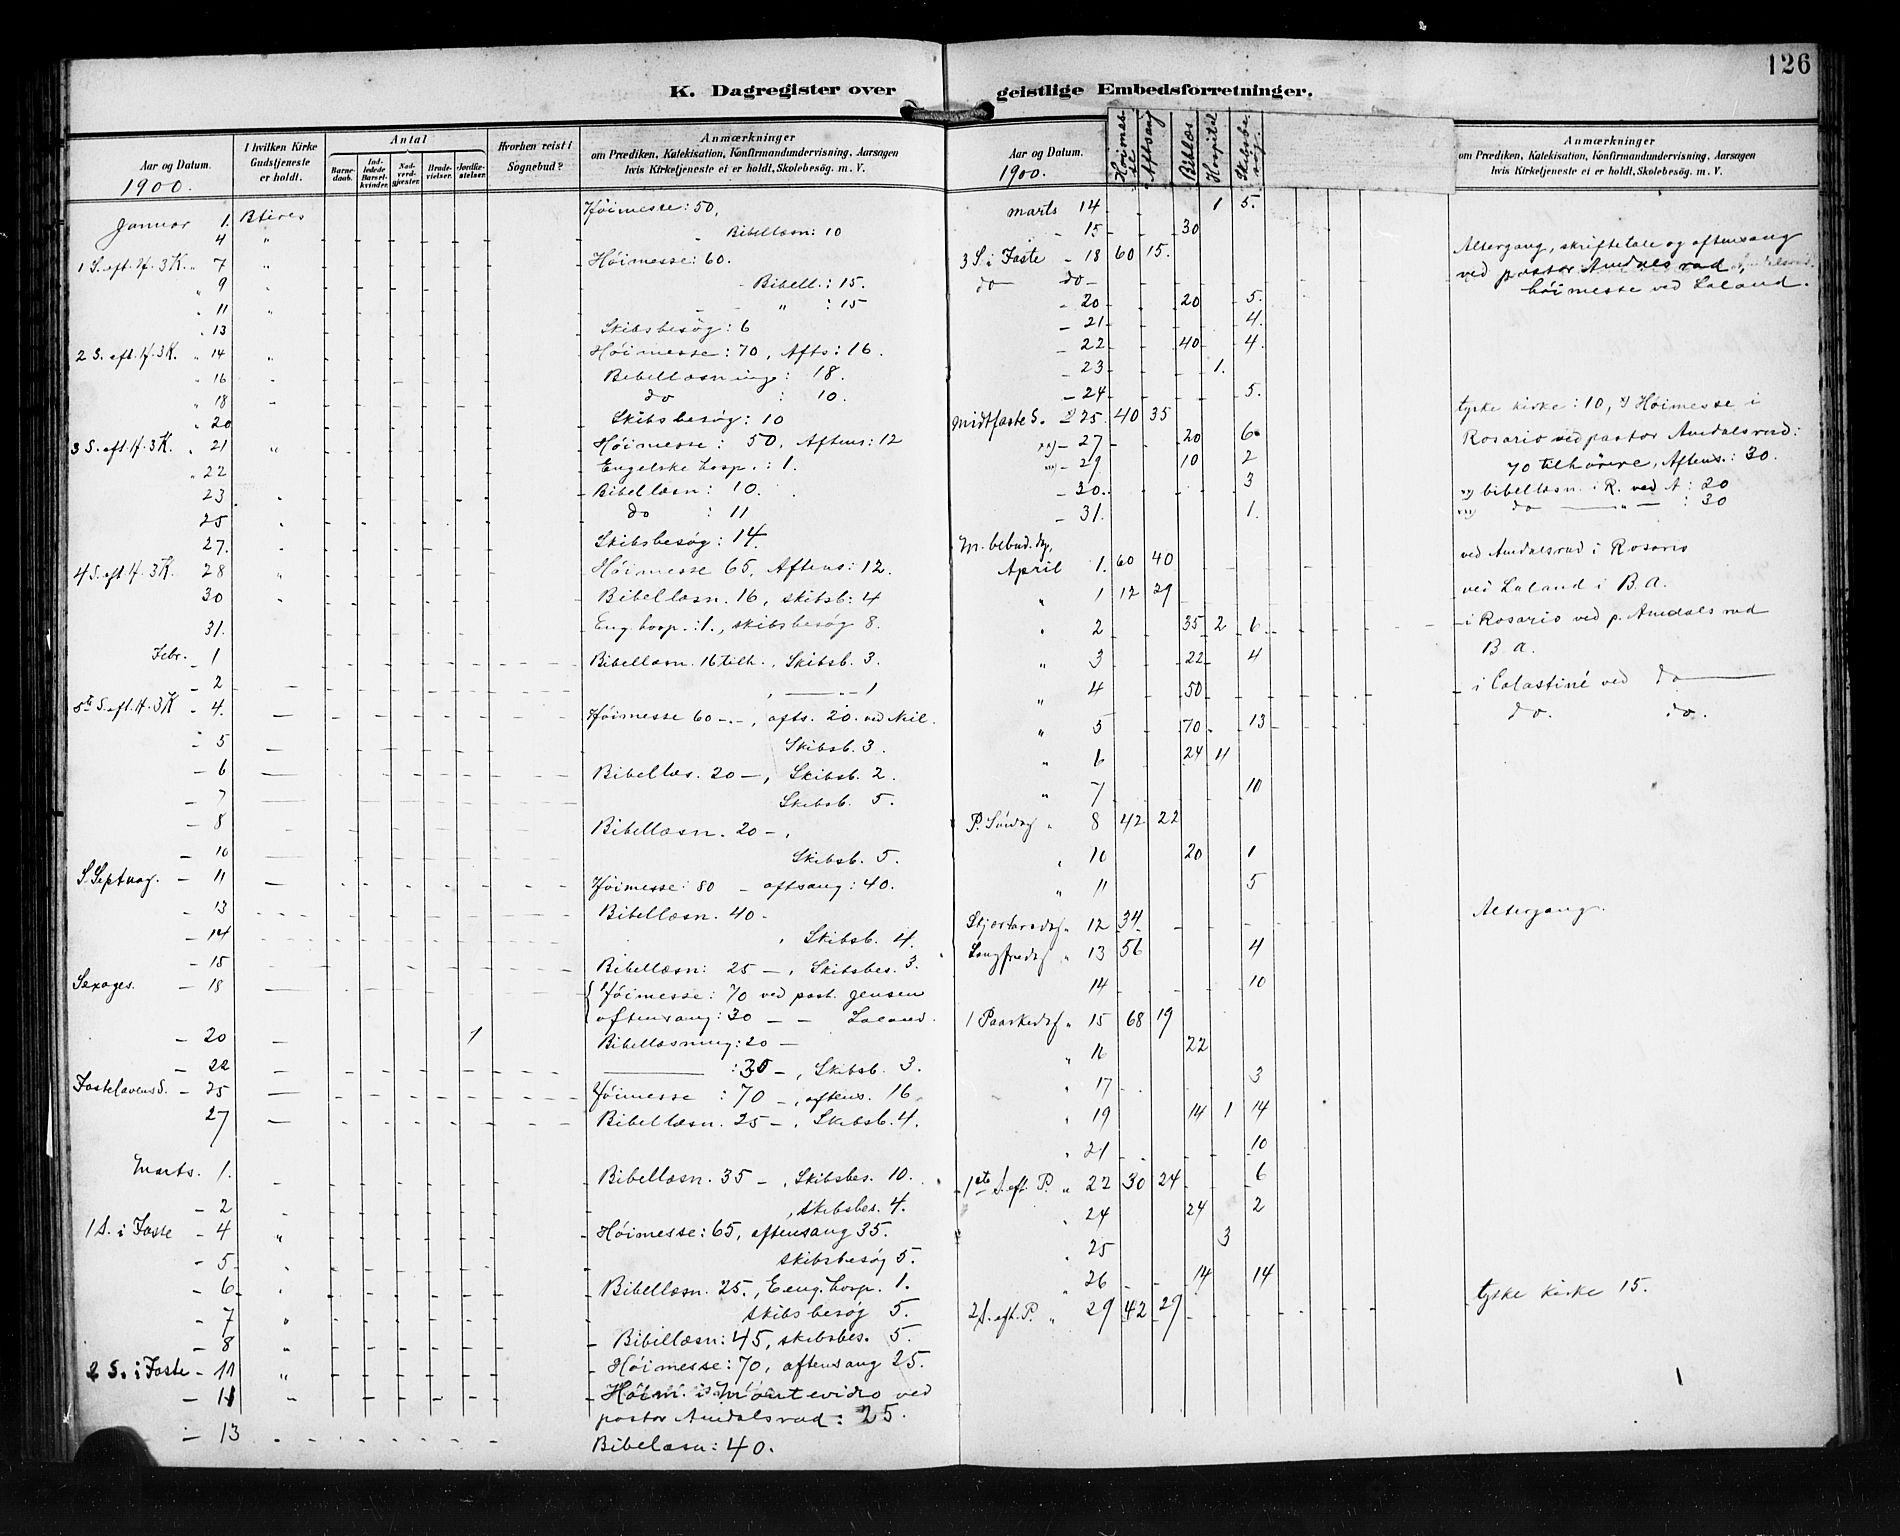 126
K. Dagregister over geistlige Embedsforretninger.
Aar og Datum. 1900.
I hvilken Kirke Gudstjeneste er holdt.
Antal
Barnedaab.
Indledede Barselkvinder.
Nadverdgjester.
Brudevielser.
Jordfæstelser.
Hvorhen reist i Sognebud?
Anmærkninger
om Prædiken, Katekisation, Konfirmandundervisning, Aarsagen
hvis Kirketjeneste ei er holdt, Skolebesøg. m. V.
Januar 1. B Aires Høimesse: 50.
4 " Bibellæsn: 10
1 S. eft. H. 3 K. " 7 " Høimesse: 60.
" 9 Bibell.: 15.
" 11 " " : 15
" 13 Skibsbesøg: 6
2 S. eft. H. 3 K. " 14 " Høimesse: 70, Afts: 16.
" 16 Bibellæsning: 18.
" 18 do : 10.
" 20 Skibsbesøg: 10
3 S. eft. H. 3 K. " 21 " Høimesse: 50, Aftens: 12
" 22 Engelske hosp.: 1.
23 Bibellæsn: 10.
25 do : 11
27. Skibsbesøg: 14
4 S. eft. H. 3 K. 28 " Høimesse 65, Aftens: 12.
30 Bibellæsn. 16, skibsb: 4
31. Eng. hosp.: 1., skibsbesøg 8.
Febr. - 1 Bibellæsn. 16 tilh., Skibsb. 3.
- 2 — " — " - 1
5te S. eft. H. 3 K - 4. — Høimesse 60 -, afts. 20. ved Neil.
- 5 — Skibsb. 3.
- 6 — Bibellæs. 20 -, Skibsb. 2.
- 7 — Skibsb. 5.
- 8 Bibellæsn. 20 -,
- 10 Skibsb. 5.
S. Septuag. - 11 — Høimesse: 80 - aftsang: 40.
- 13 Bibellæsn. 40 -
- 14 , Skibsb. 4.
- 15 Bibellæsn: 25 -, Skibsbes. 3.
Sexages. - 18 — Høimesse: 70 ved past. Jensen
aftensang: 30 - - Laland.
- 20 - 1 Bibellæsning: 20 -
- 22 — : 30 -, Skibsb. 3.
Fastelavens S. - 25 — Høimesse : 70 -, aftens. 16
27 — Bibellæsn. 25 -, Skibsb. 4.
Marts. 1. - Bibellæsn. 35 -, Skibsbes. 10.
- 2 , skibsbes. 4.
1 S. i Faste - 4 " Høimesse: 65, aftensang 35.
- 5 skibsbesøg 5.
- 6 Bibellæsn. 25., Eeng. hosp. 1.
- 7 " skibsbesøg 5.
- 8 " Bibillæsn: 45, skibsbes. 5.
2 S. i Faste - 11 " Høimesse: 70, aftensang 25.
- 11 Høim. i Montevideo ved
pastor Amdalsrud: 25.
- 13 Bibelæsn: 40.
Aar og Datum. 1900.
Høimesse
Aftsang
Biblæs.
Hospital
Skibsbesøg.
Anmærkninger
om Prædiken, Katekisation, Konfirmandundervisning, Aarsagen
hvis Kirketjeneste ei er holdt, Skolebesøg. m. V.
marts 14 1 5.
- 15 30
3 S. i Faste - 18 60 15. Altergang, skriftetale og aftensang
ved pastor Amdalsrud,
do do - høimesse ved Laland.
- 20 20 5.
- 21 4.
- 22 40 4.
- 23 1.
- 24 5.
Midtfaste S. 25. 40 35 tyske kirke: 10, Høimesse i
- 27 20 6 Rosario ved pastor Amdalsrud:
70 tilhörere, Aftens.: 30.
- 29 10 2
- 30. 3 bibellæsn. i R. ved A: 20
- 31. 1. do — " — : 30
M. bebud. dg,
April 1. 60 40 ved Amdalsrud i Rosario
" 1 12 29 ved Laland i B. A.
" 2 35 2 6 i Rosario ved p. Amdalsrud
" 3 22 4 B. A.
" 4 50 i Colastiné ved do —
" 5 70 13 do. do.
" 6 24 4
" 7 10
P. Søndag " 8 42 22
" 10 20 1
" 11 5
Skjærtorsdag " 12 34 Altergang.
Langfredag " 13 56 4
14 10
1 Paaskedag " 15 68 19
" 16 22
" 17 3
" 19 14 1 14
" 21 10
1ste S. eft. P. " 22 30 24 6
" 24 24 2
" 25 3
" 26 14 14
2 S. eft. P. " 29 42 29 tyske kirke 15.